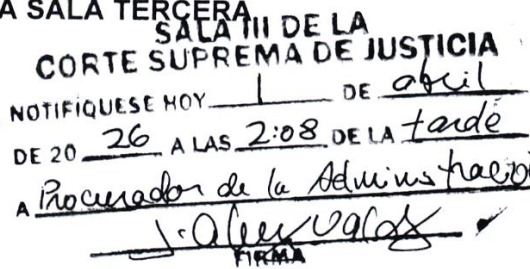 A SALA TERCERA
SALA III DE LA
CORTE SUPREMA DE JUSTICIA
NOTIFÍQUESE HOY 1 DE abril
DE 20 26 A LAS 2:08 DE LA tarde
A Procurador de la Administració
FIRMA